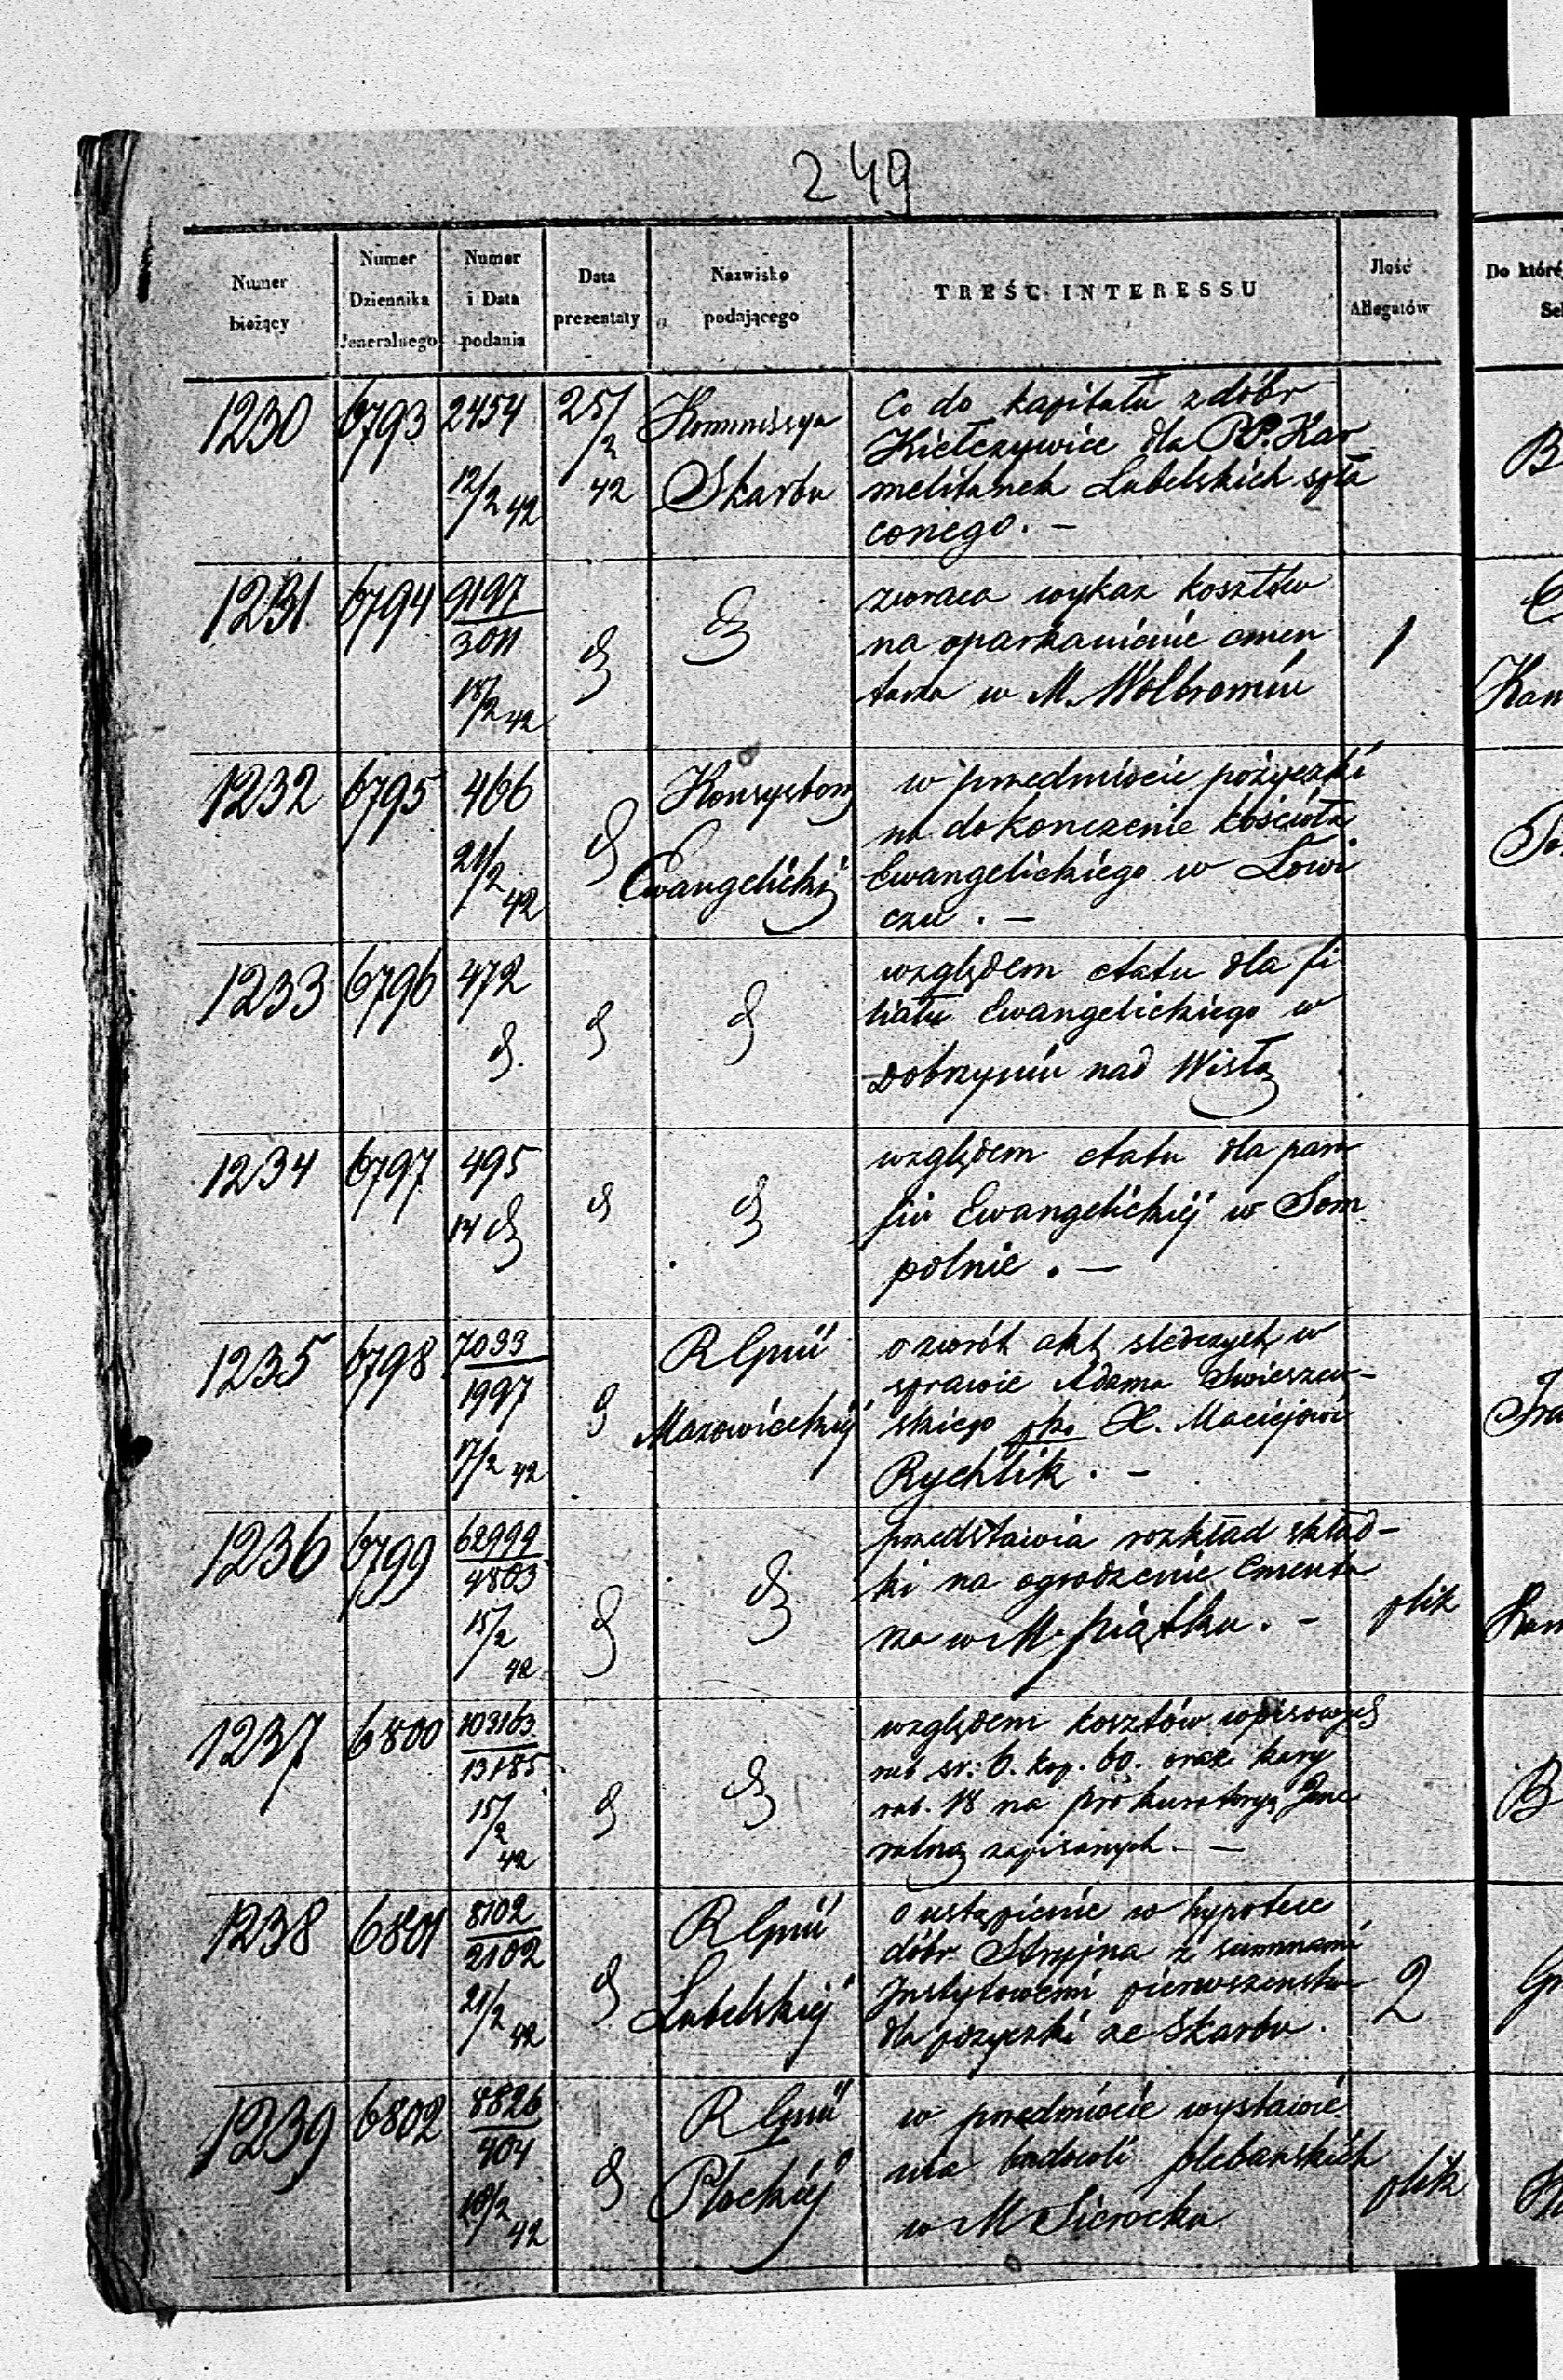 249
Numer bieżący
Numer Dziennika Jeneralnego
Numer i Data podania
Data prezentaty
Nazwisko podającego
TREŚC INTERESSU
Jlość Allegatów
Do któré
Se
1230 6793 2454 12/2 42 25/2 42 Kommissya Skarbu
Co do kapitału z dóbr
Kiełczywice dla PP. Kar
melitanek Lubelskich spła
conego. —
B
1231 6794 9197/3011 18/2 42 d d
zwraca wykaz kosztów
na oparkanienie cmen
tarza w M. Wolbromiu
1
Kan
1232 6795 466 21/2 42 d Konsystorz Ewangelicki
w przedmiocie pożyczki
na dokończenie kościoła
Ewangelickiego w Łowi
czu. —
1233 6796 472 d. d d
względem etatu dla fi
liału Ewangelickiego w
Dobrzyniu nad Wisłą
1234 6797 495 14 d d d
względem etatu dla para
fii Ewangelickiéj w Som
polnie. —
1235 6798 7033/1997 17/2 42 d R Gnii Mazowieckiéj
o zwrót akt śledczych w
sprawie Adama Swieszew-
skiego pko X. Maciejowi
Rychlik. —
1236 6799 62999/4803 15/2 42 d d
przedstawia rozkład skład-
ki na ogrodzenie Cmenta
rza w M. Piątku. —
plik
Kan
1237 6800 103163/13185 15/2 42 d d
względem kosztów wpisowych
rub. sr. 6. kop. 60. oraz kary
rub. 18 na prokuratoryą Jene
ralną zapisanych. —
B
1238 6801 8102/2102 21/2 42 d R Gnii Lubelskiéj
o ustąpienie w hypotece
dóbr Stryjna z summami
Instytowemi pierwszenstwa
dla pożyczki ze Skarbu.
2
1239 6802 8826/404 18/2 42 d R Gnii Płockiéj
w przedmiocie wystawie
nia budowli plebańskich
w M Sierocku
plik